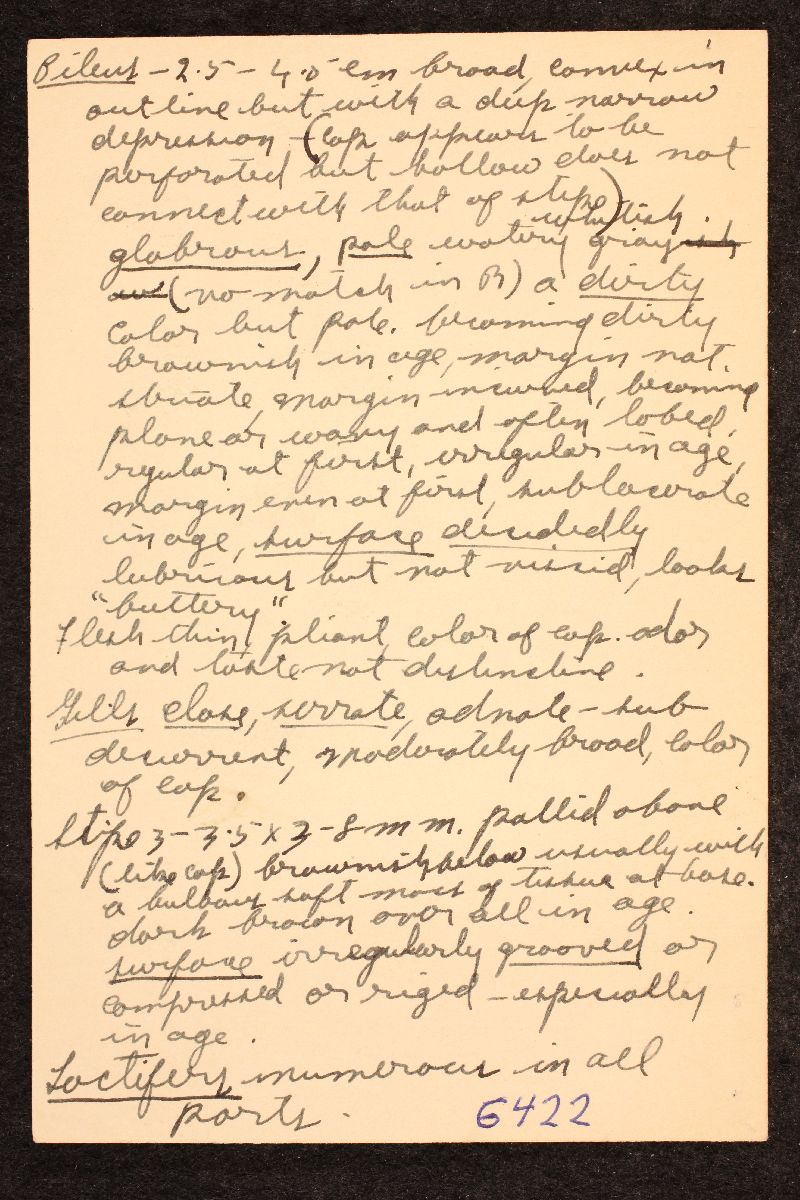 Pileus - 2.5 - 4.5 cm broad, convex in
outline but with a deep narrow
depression - (cap appears to be
perforated but hollow does not
connect with that of stipe)
whitish.
glabrous, pale watery grayish
(no match in R) a dirty
color but pale. becoming dirty
brownish in age, margin not
striate, margin incurved, becoming
plane or wavy and often lobed,
regular at first, irregular in age,
margin even at first, sublacerate
in age, surface decidedly
lubricous but not viscid, looks
"buttery"
Flesh thin, pliant, color of cap. odor
and taste not distinctive.
Gills close, serrate, adnate - sub
decurrent, moderately broad, color
of cap.
Stipe 3 - 3.5 x 3 - 8 mm. pallid above
(like cap) brownish below usually with
a bulbous soft mass of tissue at base.
dark brown over all in age.
surface irregularly grooved or
compressed or riged - especially
in age.
Lactifers numerous in all
parts.
6422